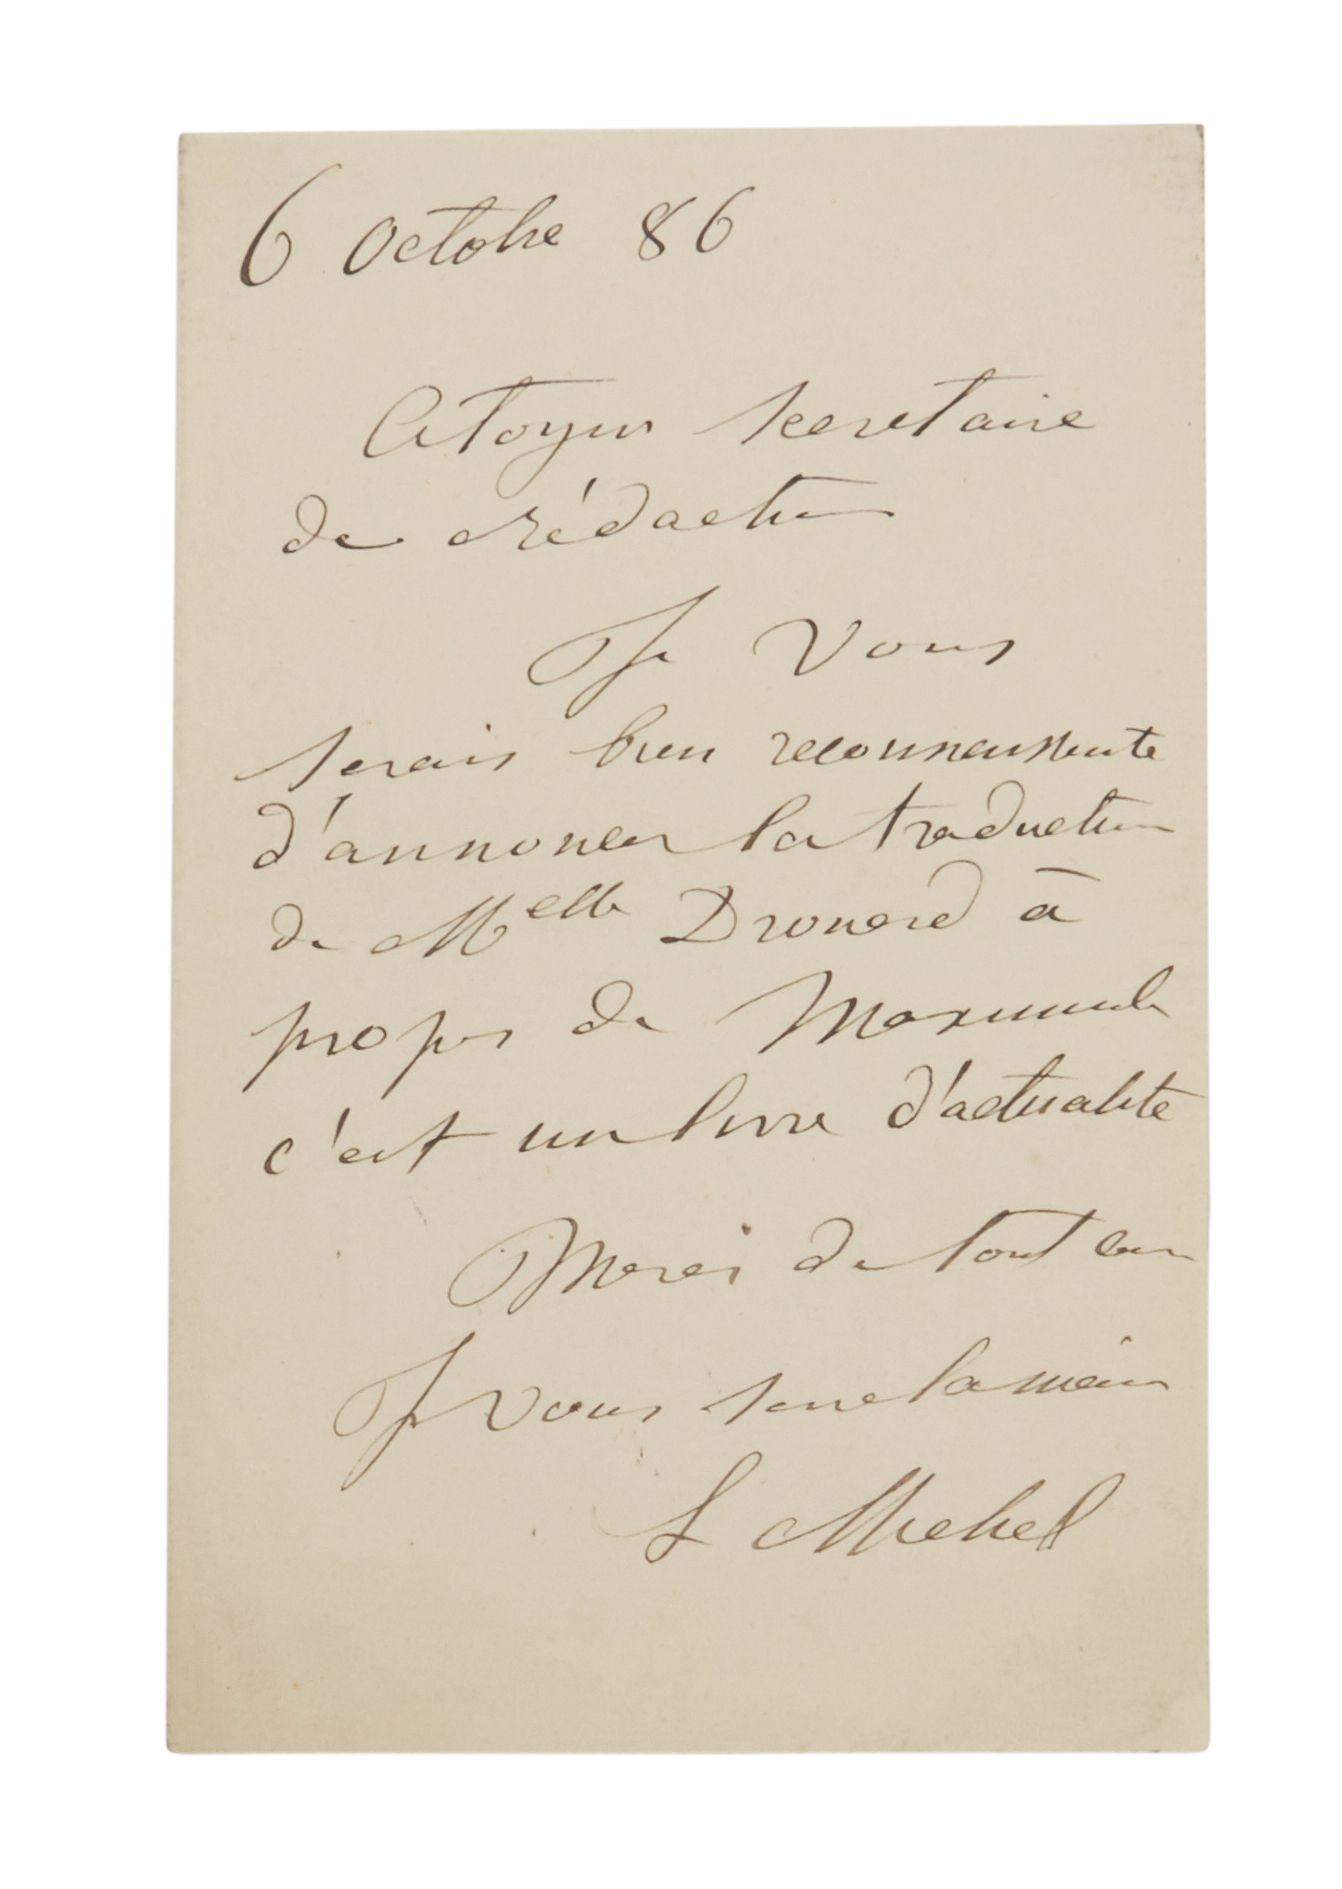 6 Octobre 86
Citoyen secretaire
de rédaction
Je vous
serais bien reconnaissante
d'annoncer la traduction
de Melle Drouard à
propos de
c'est un livre d'actualite
Merci de tout cœur
Je vous serre la main
L Michel